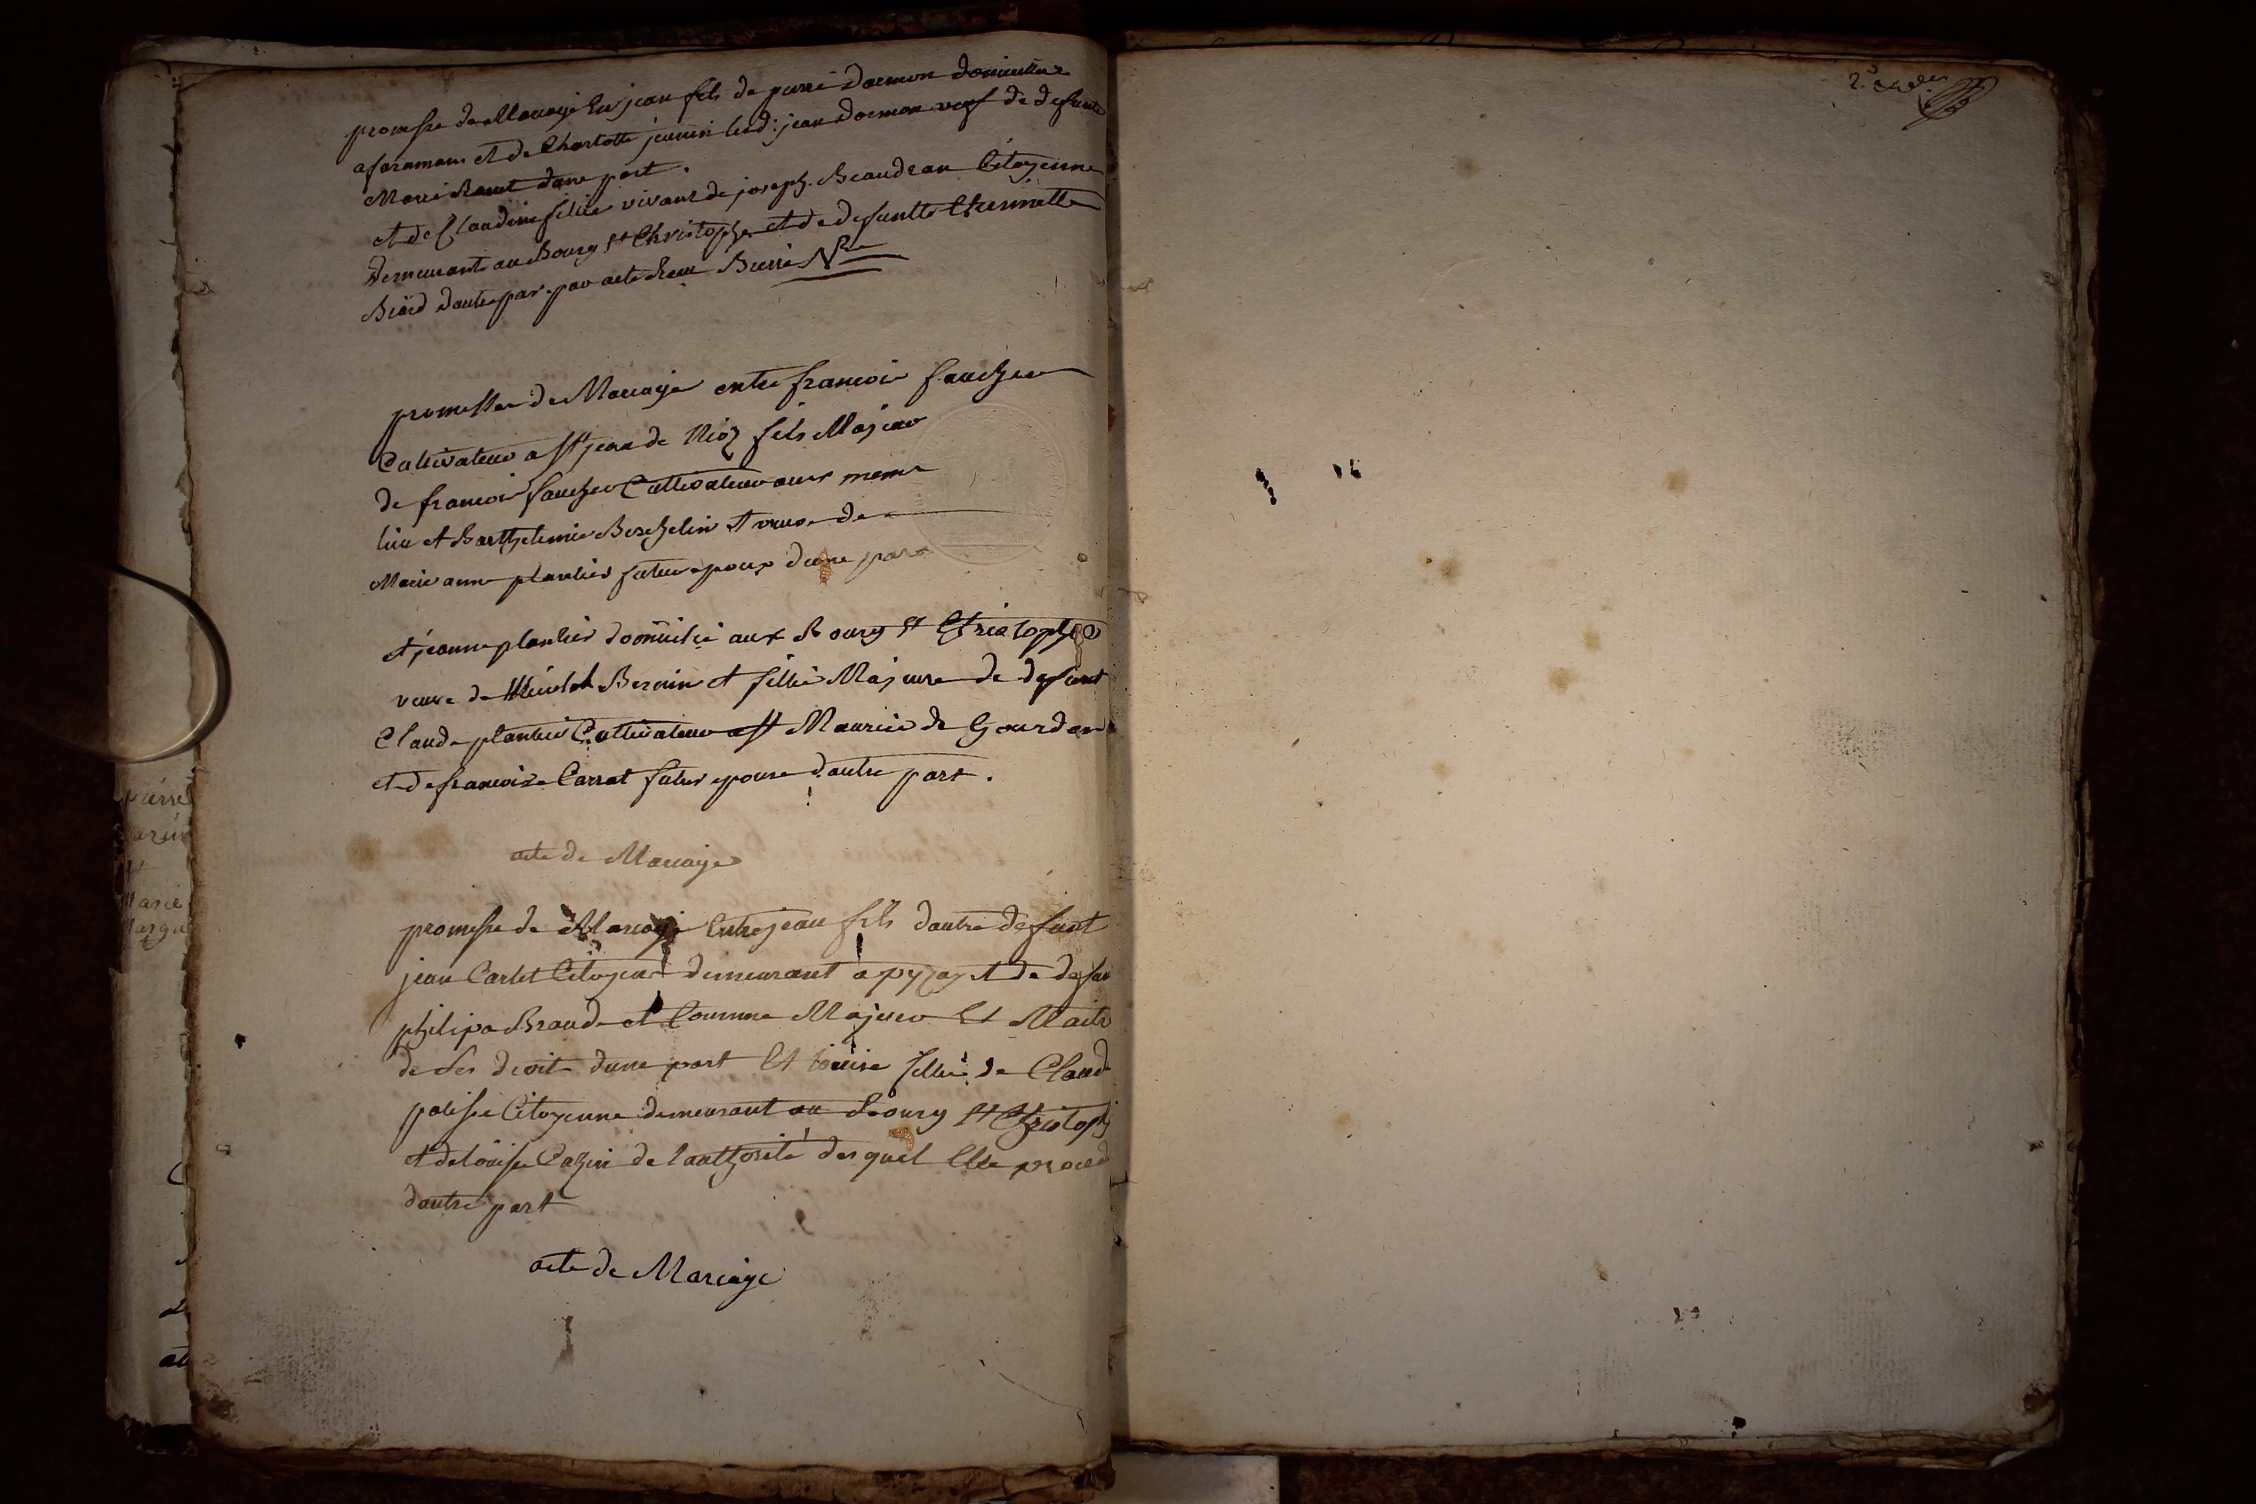 promesse de Mariage Entre jean fils de pierre Dormon domicilier
a faramans et de Charlotte jeunin led: jean dormon vef de defunte
Marie Ravet dune part.
et de Claudine fillie vivant de joseph Beaudran Citoyenne
demeurante au Bourg St Christophe et de defuntte Etiennette
Biord dautre par par acte Reçu Bierre Nre
promesse de Mariage entre francois faucher
Cultivateur a St jean de Nioz fils Majeur
de francois faucher Cultivateur aux meme
lieu et Barthelemie Berchelin et veuve de
Marie anne plantier futur epoux dune part
et jeanne plantier domicilié aux Bourg St Christophe
veuve de Bernin et fillie Majeure de defunt
Claude plantier Cultivateur a St Maurice de Gourdan
et de francoise Carrat futur epouse dautre part.
acte de Mariage
promesse de Mariage Entre jean fils dautre defunt
jean Carlet Citoyen demeurant a pyzay et de defun
philipa Braude et Comme Majeur Et Maitr
de Ses droit dune part Et loüise fillie de Claud
polisse Citoyenne demeurant au Bourg St Christoph
et de loüise Cazin de lauthorité desquel Elle proced
dautre part
acte de Mariage
pierre
Marie